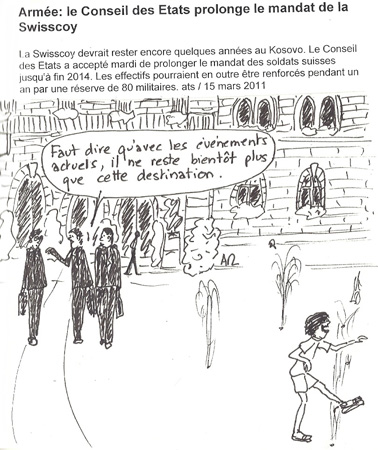 Armée: le Conseil des Etats prolonge le mandat de la
Swisscoy
La Swisscoy devrait rester encore quelques années au Kosovo. Le Conseil
des Etats a accepté mardi de prolonger le mandat des soldats suisses
jusqu'à fin 2014. Les effectifs pourraient en outre être renforcés pendant un
an par une réserve de 80 militaires. ats / 15 mars 2011
Faut dire qu'avec les événements
actuels, il ne reste bientôt plus
que cette destination.